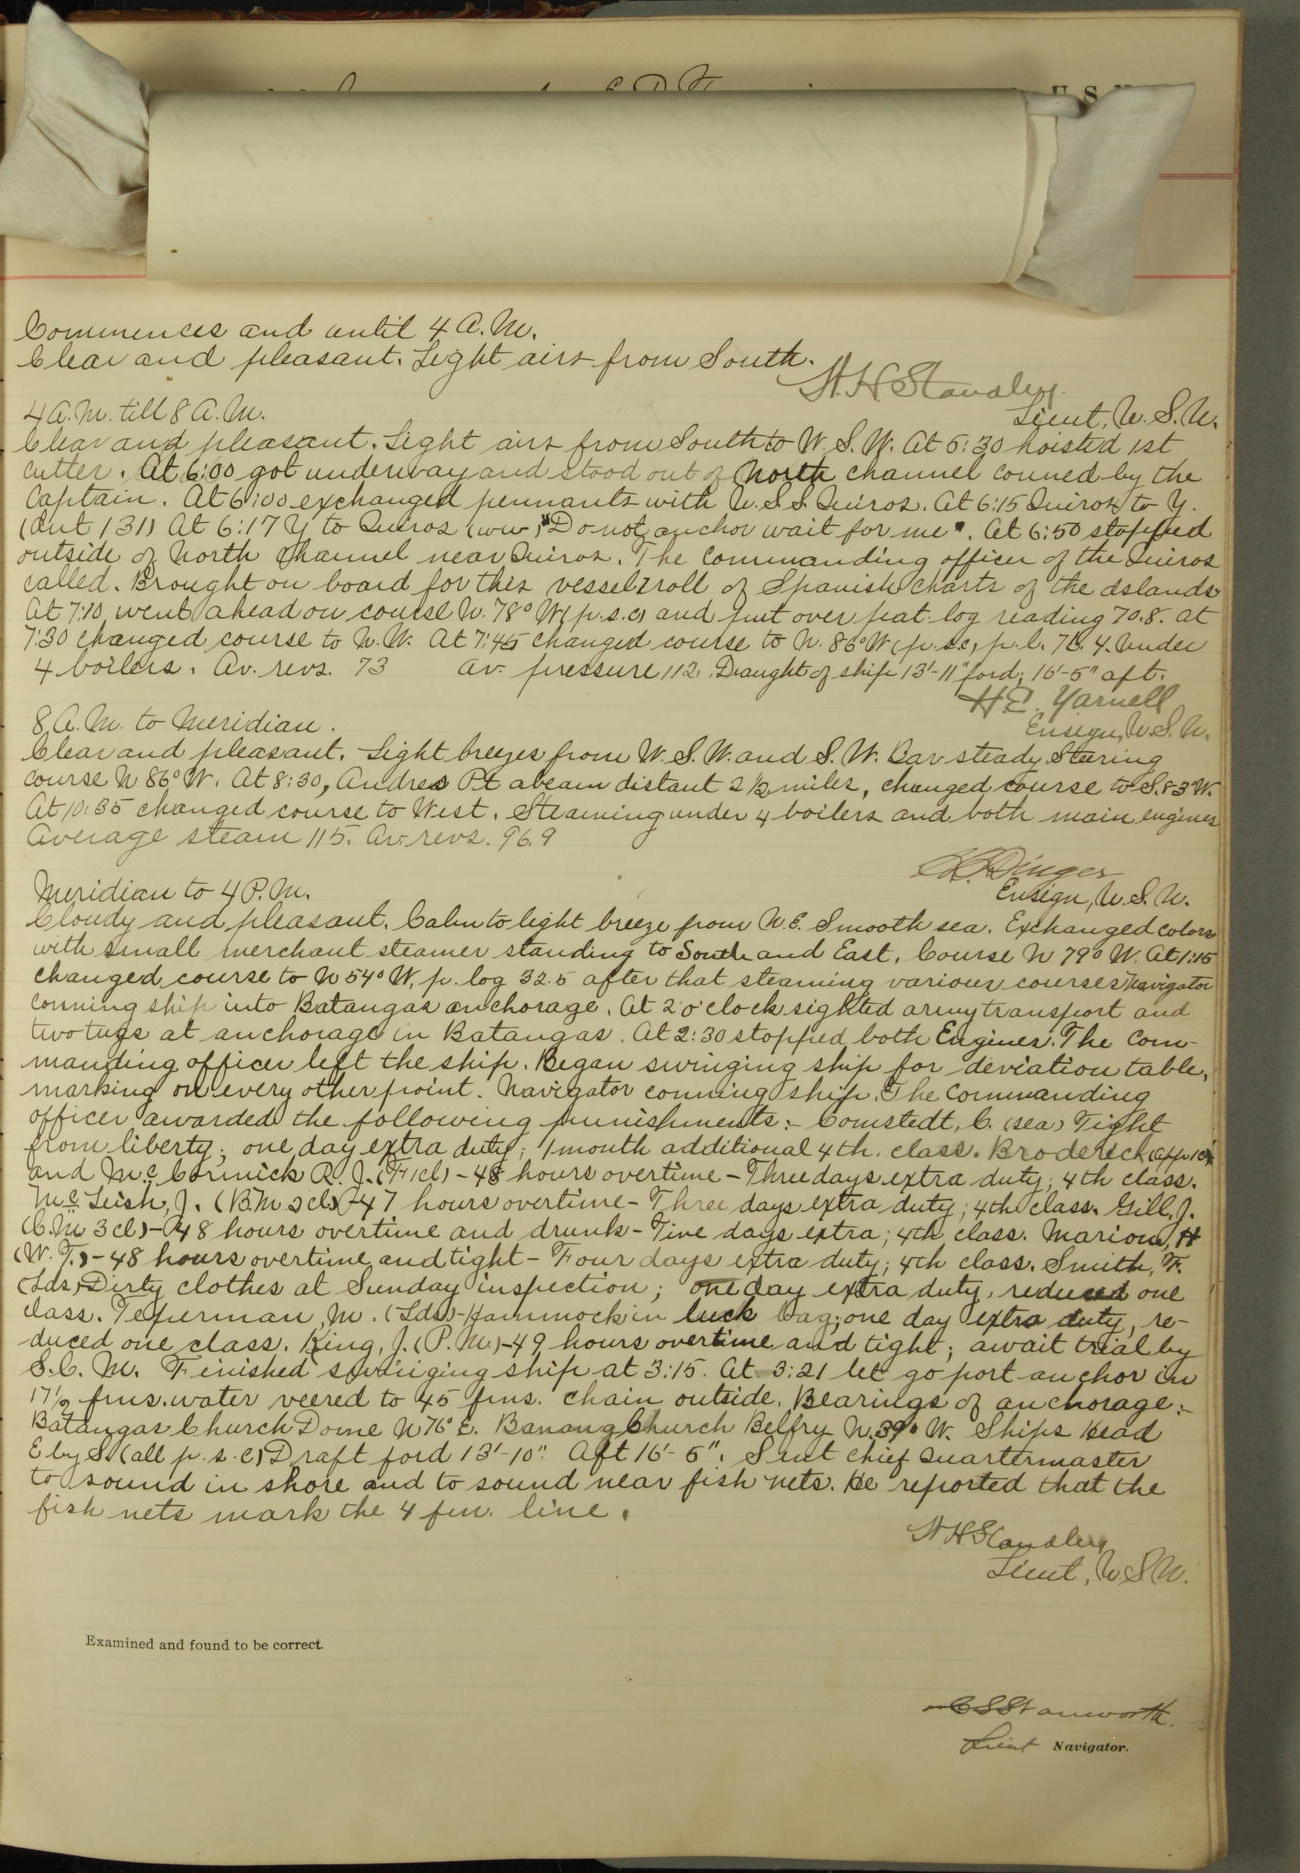 U S N
Commences and until 4 A.M.
Clear and pleasant. Light airs from South.
W. H. Standley
Lieut, U.S.N.
4 A.M. till 8 A.M.
Clear and pleasant. Light airs from South to W.S.W. At 5:30 hoisted 1st
cutter. At 6:00 got underway and stood out of North channel conned by the
Captain. At 6:00 exchanged pennants with U.S.S. Quiros. At 6:15 Quiros to Y.
(Ant 131) At 6:17 Y to Quiros (ww) "Do not anchor wait for me". At 6:50 stopped
outside of North Channel near Quiros. The Commanding officer of the Quiros
called. Brought on board for this vessel roll of Spanish charts of the islands
At 7:10 went ahead on course N. 78° W (p.s.c) and put over pat. log reading 70.8. At
7:30 changed course to N.W. At 7:45 changed course to N. 86° W (p.s.c, p.l. 76.4. Under
4 boilers. Av. revs. 73 Av. pressure 112. Draught of ship 13'-11" ford; 16'-5" aft.
H.E. Yarnell
Ensign, U.S.N.
8 A.M. to Meridian.
Clear and pleasant. Light breezes from W.S.W. and S.W. Bar steady. Steaming
course N 86° W. At 8:30, Andres Pt abeam distant 2 1/2 miles, changed course to S. 83 W.
At 10:35 changed course to West. Steaming under 4 boilers and both main engines
Average steam 115. Av. revs. 96.9
Dinger
Ensign, U.S.N.
Meridian to 4 P.M.
Cloudy and pleasant. Calm to light breeze from N.E. Smooth sea. Exchanged colors
with small merchant steamer standing to South and East. Course N 79° W. At 1:15
changed course to N 54° W, p. log 32.5 after that steaming various courses Navigator
conning ship into Batangas anchorage. At 2 o'clock sighted army transport and
two tugs at anchorage in Batangas. At 2:30 stopped both Engines. The Com-
manding officer left the ship. Began swinging ship for deviation table,
marking on every other point. Navigator conning ship. The Commanding
officer awarded the following punishments:- Comstedt, C. (sea) Tight
from liberty; one day extra duty; 1 month additional 4th. class. Broderick (app 1cl)
and McCormick R.J. (F1cl) - 48 hours overtime - Three days extra duty; 4th class.
McLeish, J. (B.M 2cl) - 47 hours overtime - Three days extra duty; 4th class. Gill, J.
(G.M 3cl) - 48 hours overtime and drunk - Five days extra; 4th class. Marion, H
(W.T.) - 48 hours overtime and tight - Four days extra duty; 4th class. Smith, F.
(Lds) Dirty clothes at Sunday inspection; one day extra duty, reduced one
class. Teperman, M. (Lds) - Hammock in luck bag; one day extra duty, re-
duced one class. King, J. (P.M.) - 49 hours overtime and tight; await trial by
S.C.M. Finished swinging ship at 3:15. At 3:21 let go port anchor in
17 1/2 fms. water veered to 45 fms. chain outside. Bearings of anchorage:-
Batangas Church Dome N 76° E. Banang Church Belfry N. 39° W. Ships Head
E by S. (all p.s.c) Draft ford 13'-10". Aft 16'-5". Sent chief Quartermaster
to sound in shore and to sound near fish nets. He reported that the
fish nets mark the 4 fm. line.
W H Standley
Lieut, U.S.N.
Examined and found to be correct.
C S Stanworth
Lieut Navigator.